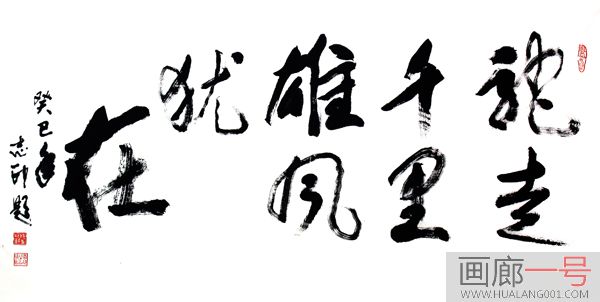 龍走
千里
雄风
犹
在
癸巳年
志印题
画廊一号
WWW.HUALANG001.COM